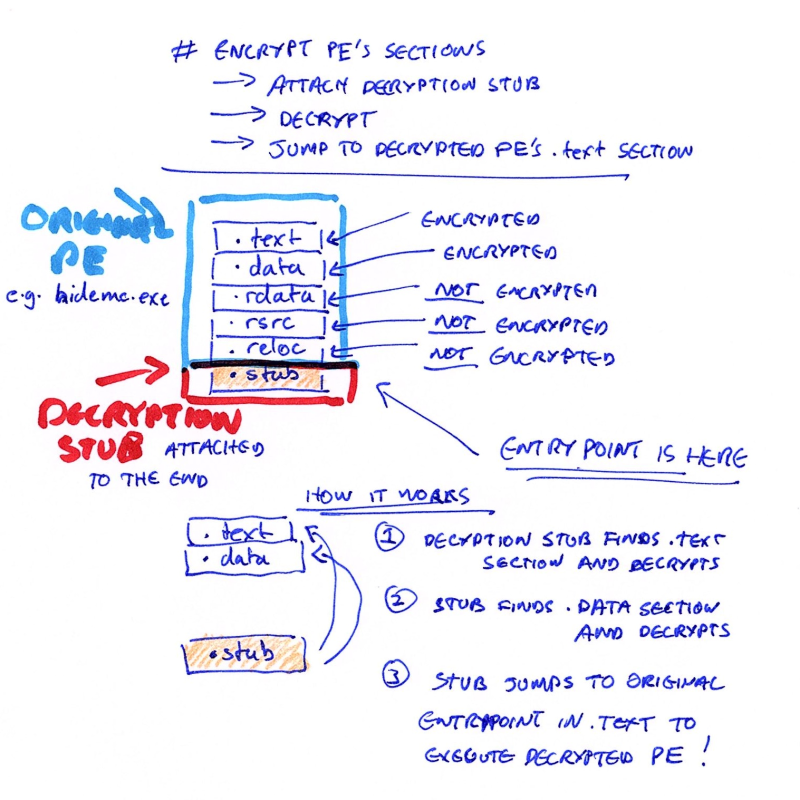 # ENCRYPT PE'S SECTIONS
→ ATTACH DECRYPTION STUB
→ DECRYPT
→ JUMP TO DECRYPTED PE'S .text SECTION
ORIGINAL
PE
e.g. hideme.exe
.text
ENCRYPTED
.data
ENCRYPTED
.rdata
NOT ENCRYPTED
.rsrc
NOT ENCRYPTED
.reloc
NOT ENCRYPTED
.stub
DECRYPTION
STUB ATTACHED
TO THE END
ENTRY POINT IS HERE
HOW IT WORKS
.text
.data
.stub
1 DECYPTION STUB FINDS .TEXT
SECTION AND DECRYPTS
2 STUB FINDS .DATA SECTION
AND DECRYPTS
3 STUB JUMPS TO ORIGINAL
ENTRYPOINT IN .TEXT TO
EXECUTE DECRYPTED PE !